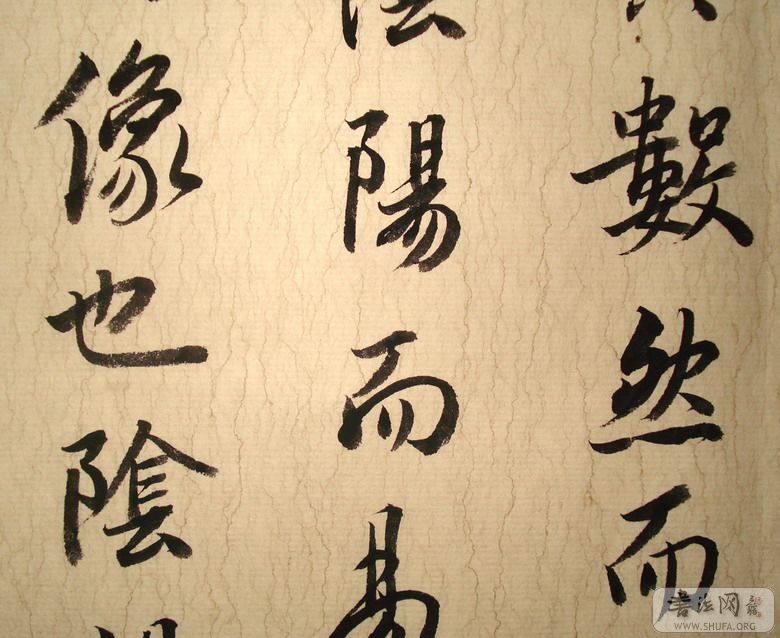 數然而
陰陽而易
像也陰
書法网
WWW.SHUFA.ORG